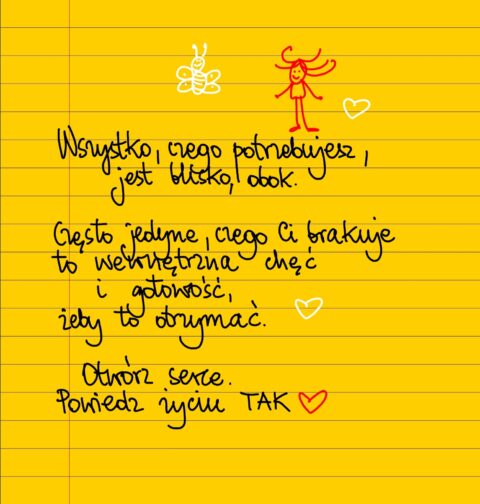 Wszystko, czego potrzebujesz,
jest blisko, obok.
Często jedyne, czego Ci brakuje
to wewnętrzna chęć
i gotowość,
żeby to otrzymać.
Otwórz serce.
Powiedz życiu TAK